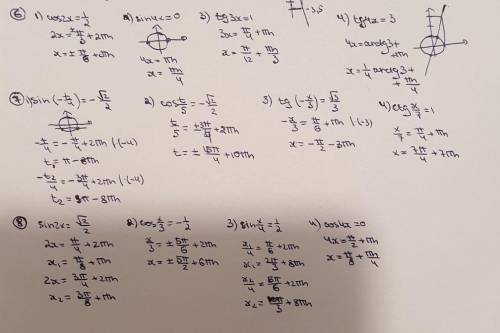 ⑥ 1) cos2x = 1/2
2x = ±π/3 + 2πn
x = ±π/6 + πn
2) sin4x = 0
4x = πn
x = πn/4
3) tg3x = 1
3x = π/4 + πn
x = π/12 + πn/3
4) tg4x = 3
4x = arctg3 + πn
x = 1/4 arctg3 + πn/4
⑦ 1) sin(-t/4) = -√2/2
-t/4 = -π/4 + 2πn |·(-4)
t₁ = π - 8πn
-t₂/4 = -3π/4 + 2πn |·(-4)
t₂ = 3π - 8πn
2) cos t/5 = -√2/2
t/5 = ±3π/4 + 2πn
t = ±15π/4 + 10πn
3) tg(-x/3) = √3/3
-x/3 = π/6 + πn |·(-3)
x = -π/2 - 3πn
4) ctg x/7 = 1
x/7 = π/4 + πn
x = 7π/4 + 7πn
⑧ sin2x = √2/2
2x = π/4 + 2πn
x₁ = π/8 + πn
2x = 3π/4 + 2πn
x₂ = 3π/8 + πn
2) cos x/3 = -1/2
x/3 = ±5π/6 + 2πn
x = ±5π/2 + 6πn
3) sin x/4 = 1/2
x₁/4 = π/6 + 2πn
x₁ = 2π/3 + 8πn
x₂/4 = 5π/6 + 2πn
x₂ = π/3 + 8πn
4) cos4x = 0
4x = π/2 + πn
x = π/8 + πn/4